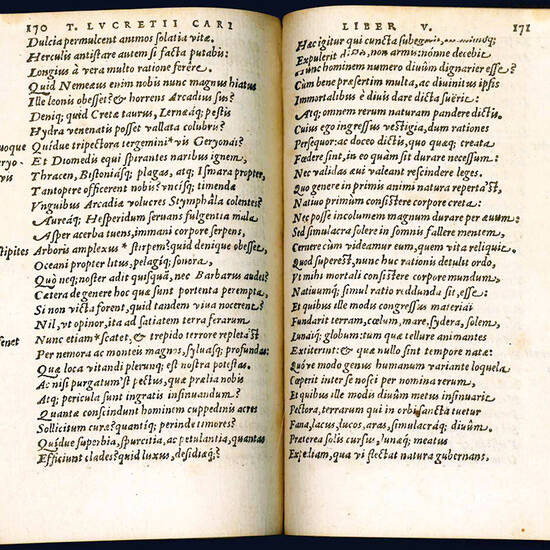 170 T. LVCRETII CARI
Dulcia permulcent animos solatia vitæ.
Herculis antistare autem si facta putabis:
Longius à vera multo ratione ferêre.
Quid Nemeæus enim nobis nunc magnus hiatus
Ille leonis obesset? & horrens Arcadius sus?
Deniq; quid Cretæ taurus, Lernæaq; pestis
Hydra venenatis posset vallata colubris?
uoque Quidue tripectora tergemini* vis Geryonai?
eryo- Et Diomedis equi spirantes naribus ignem,
vis Thracen, Bistoniasq; plagas, atq; Ismara propter,
Tantopere officerent nobis? vncisq; timenda
Vnguibus Arcadiæ volucres Stymphâla colentes?
Aureáq; Hesperidum seruans fulgentia mala
Asper acerba tuens, immani corpore serpens,
stipites Arboris amplexus* stirpem? quid denique obesset,
Oceani propter litus, pelagiq; sonora,
Quò neq; noster adit quisquā, nec Barbarus audet?
Cætera de genere hoc quæ sunt portenta perempta,
Si non victa forent, quid tandem viua nocerent?
Nil, vt opinor, ita ad satiatem terra ferarum
Nunc etiam* scatet, & trepido terrore repleta'st
Per nemora ac monteis magnos, syluasq; profundas:
Quæ loca vitandi plerunq; est nostra potestas.
At nisi purgatum'st pectus, quæ prælia nobis
Atq; pericula sunt ingratis insinuandum?
Quantæ conscindunt hominem cuppedinis acres
Sollicitum curæ? quantiq; perinde timores?
Quidue superbia, spurcitia, ac petulantia, quantas
Efficiunt clades? quid luxus, desidiæq;?
LIBER V. 171
Hæc igitur qui cuncta subegerit,
Expulerit non armis: nonne decebit
Nunc hominem numero diuûm dignarier esse?
Cùm bene præsertim multa, ac diuinitus ipsis
Immortalibus è diuis dare dicta suërit:
Atq; omnem rerum naturam pandere dictis.
Cuius ego ingressus vestigia, dum rationes
Persequor: ac doceo dictis, quo quæq; creata
Fœdere sint, in eo quàm sit durare necessum:
Nec validas æui valeant rescindere leges.
Quo genere in primis animi natura reperta'st,
Natiuo primum consistere corpore creta:
Nec posse incolumem magnum durare per æuum:
Sed simulacra solere in somnis fallere mentem,
Cernere cùm videamur eum, quem vita reliquit.
Quod superest, nunc huc rationis detulit ordo,
Vt mihi mortali consistere corpore mundum,
Natiuumq; simul ratio reddunda sit, esse:
Et quibus ille modis congressus materiai
Fundarit terram, cœlum, mare, sydera, solem,
Lunaiq; globum: tum quæ tellure animantes
Extiterint: & quæ nullo sint tempore natæ:
Quó've modo genus humanum variante loquela
Cœperit inter se nosci per nomina rerum,
Et quibus ille modis diuûm metus insinuarit
Pectora, terrarum qui in orbi sancta tuetur
Fana, lacus, lucos, aras, simulacraq; diuûm.
Præterea solis cursus, lunæq; meatus
Expediam, qua vi flectat natura gubernans.
senet